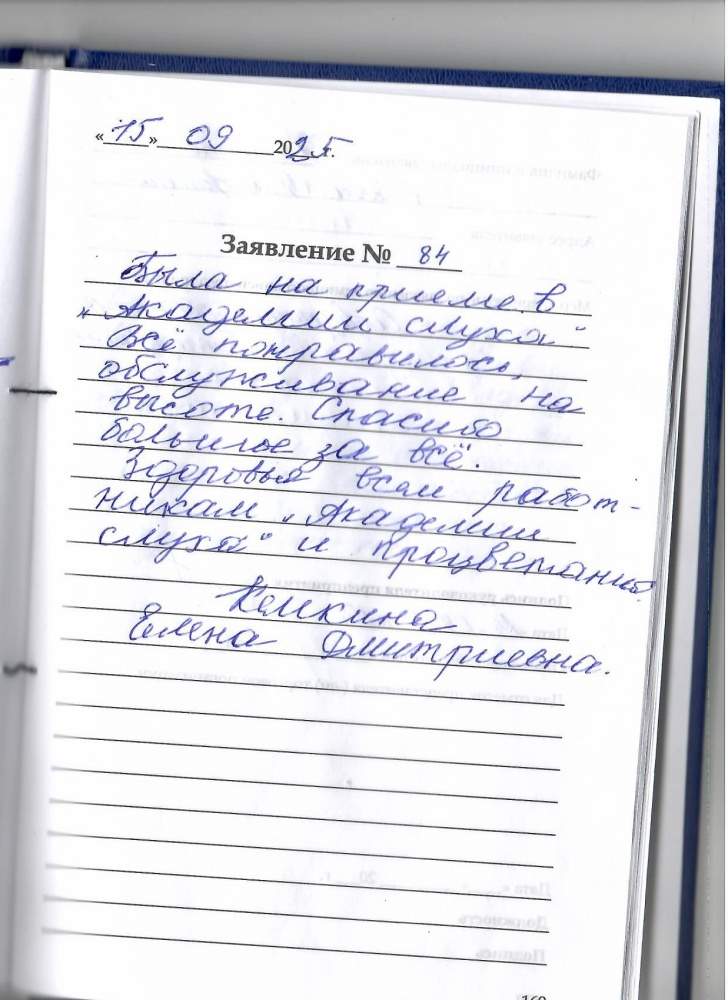 «15» 09 2025г.
Заявление № 84
Была на приеме в
„Академии слуха“
Всё понравилось,
обслуживание на
высоте. Спасибо
большое за всё.
Здоровья всем работ-
никам „Академии
слуха“ и процветания.
Кемкина
Елена Дмитриевна.